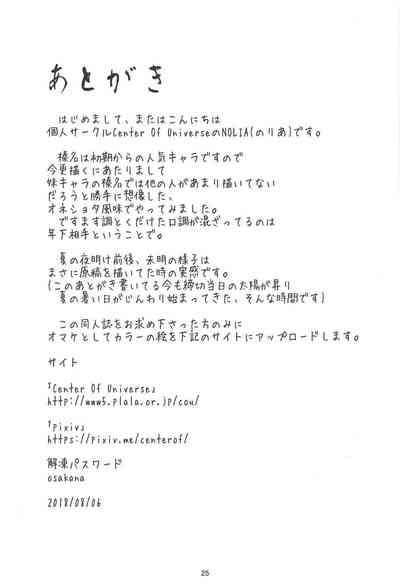 あとがき
はじめまして、またはこんにちは
個人サークルCenter Of UniverseのNOLIA(のりあ)です。
榛名は初期からの人気キャラですので
今更描くにあたりまして
妹キャラの榛名では他の人があまり描いてない
だろうと勝手に想像した、
オネショタ風味でやってみました。
ですます調とくだけた口調が混ざってるのは
年下相手ということで。
夏の夜明け前後、未明の様子は
まさに原稿を描いてた時の実感です。
(このあとがき書いてる今も締切当日の太陽が昇り
夏の暑い日がじんわり始まってきた、そんな時間です)
この同人誌をお求め下さった方のみに
オマケとしてカラーの絵を下記のサイトにアップロードします。
サイト
「Center Of Universe」
http://www5.plala.or.jp/cou/
「pixiv」
https://pixiv.me/centerof/
解凍パスワード
osakana
2018/08/06
25